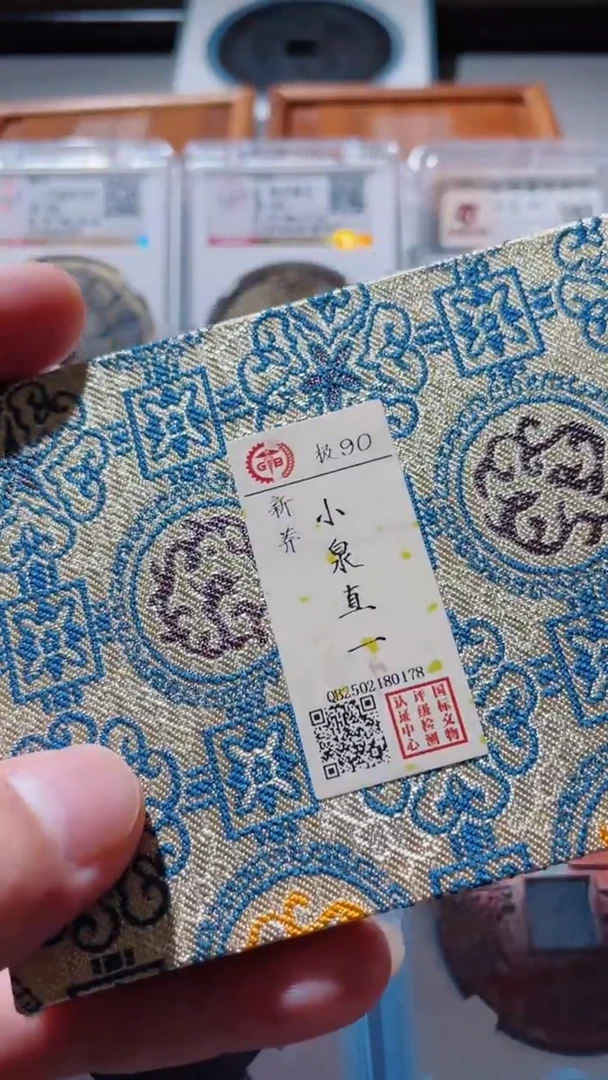 GB
极90
新莽
小泉直一
QB2502180178
国标文物
评级检测
认证中心